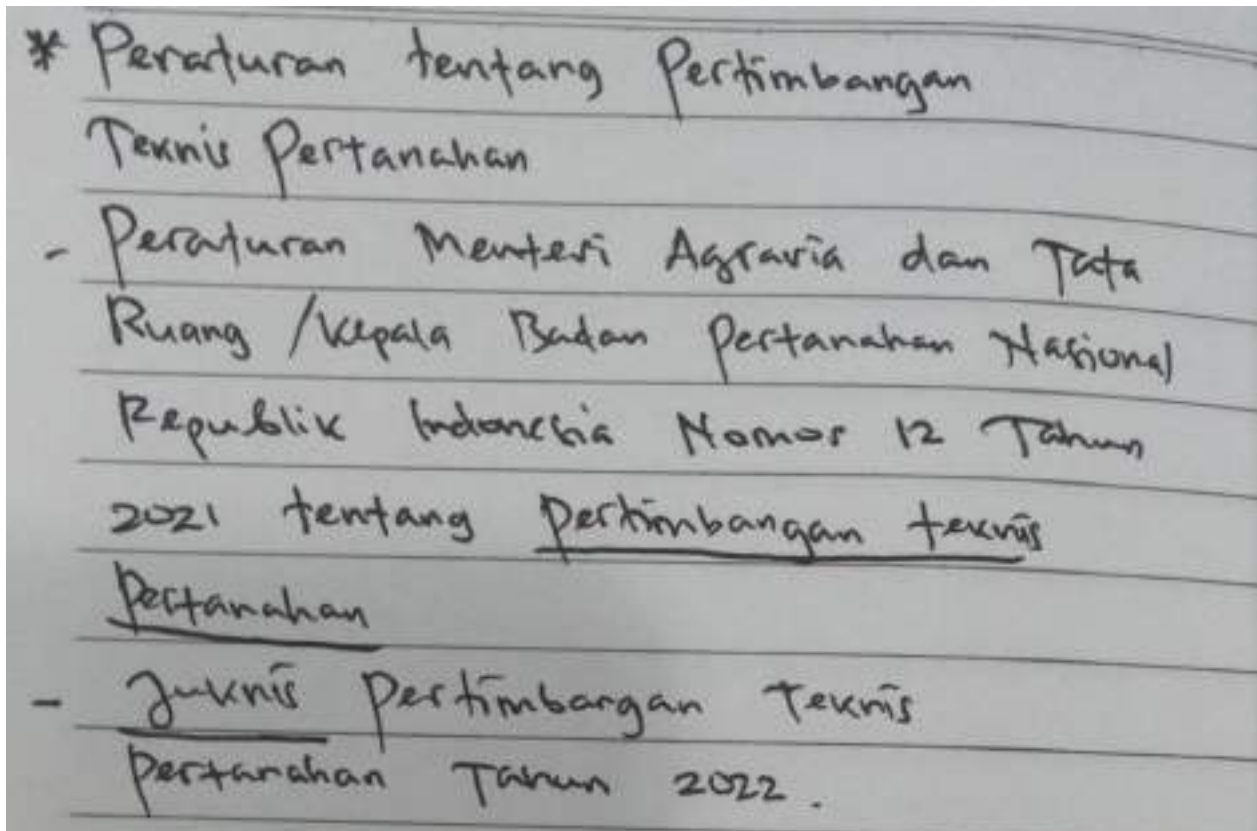 * Peraturan tentang Pertimbangan
Teknis Pertanahan
- Peraturan Menteri Agraria dan Tata
Ruang /Kepala Badan Pertanahan Nasional
Republik Indonesia Nomor 12 Tahun
2021 tentang pertimbangan teknis
Pertanahan
- Juknis Pertimbangan Teknis
pertanahan Tahun 2022.